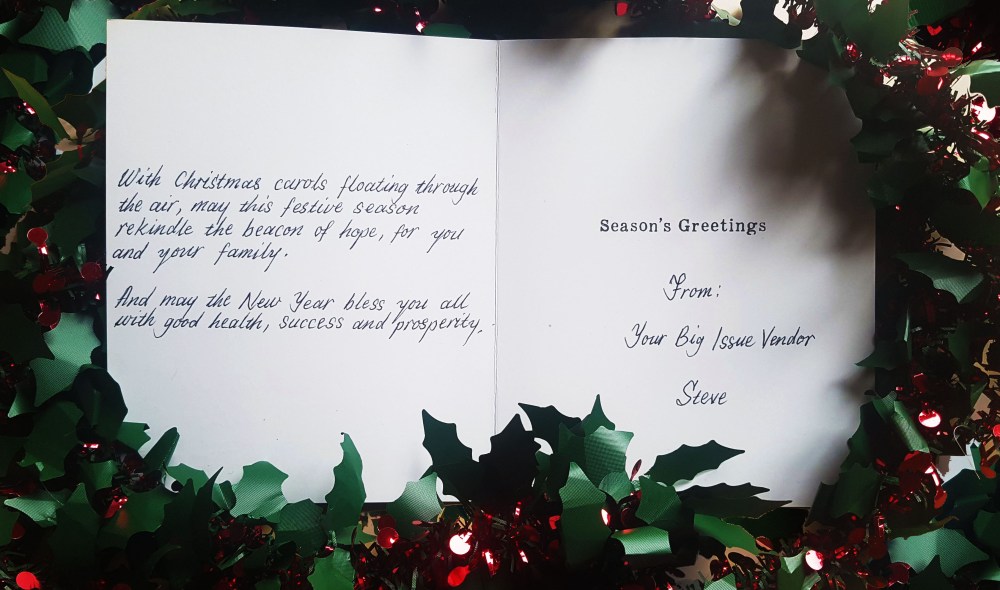 With Christmas carols floating through
the air, may this festive season
rekindle the beacon of hope, for you
and your family.
And may the New Year bless you all
with good health, success and prosperity.
Season's Greetings
From:
Your Big Issue Vendor
Steve